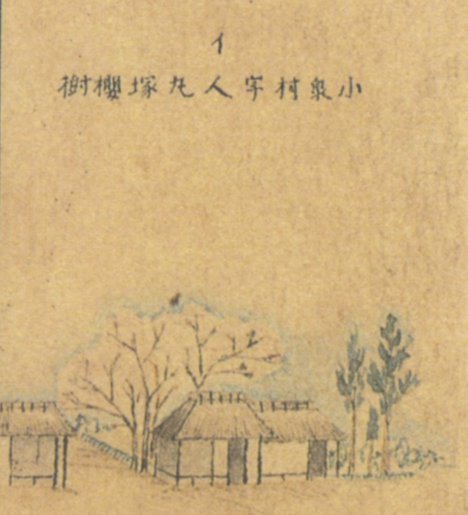 イ
小泉村字人丸塚櫻樹